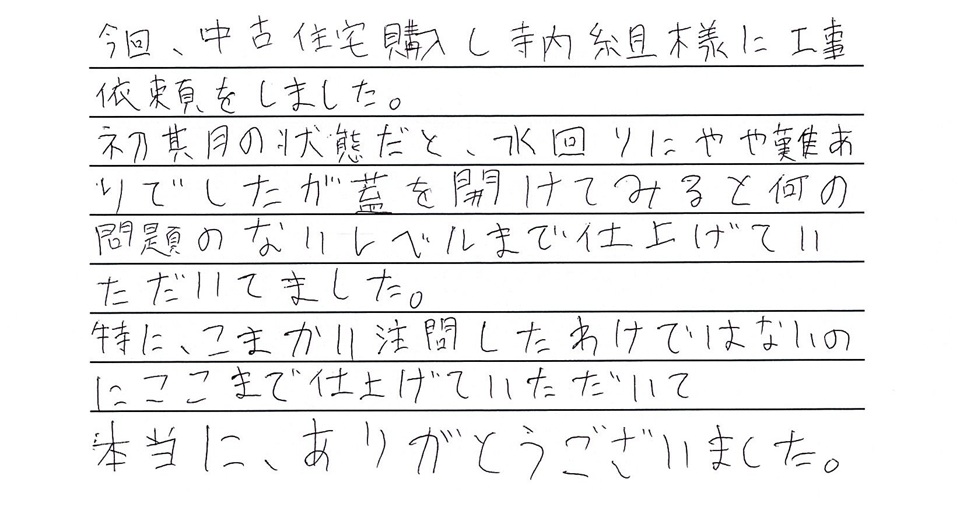 今回、中古住宅購入し寺内組様に工事
依頼をしました。
初期の状態だと、水回りにやや難あ
りでしたが蓋を開けてみると何の
問題のないレベルまで仕上げてい
ただいてました。
特に、こまかい注問したわけではないの
にここまで仕上げていただいて
本当に、ありがとうございました。